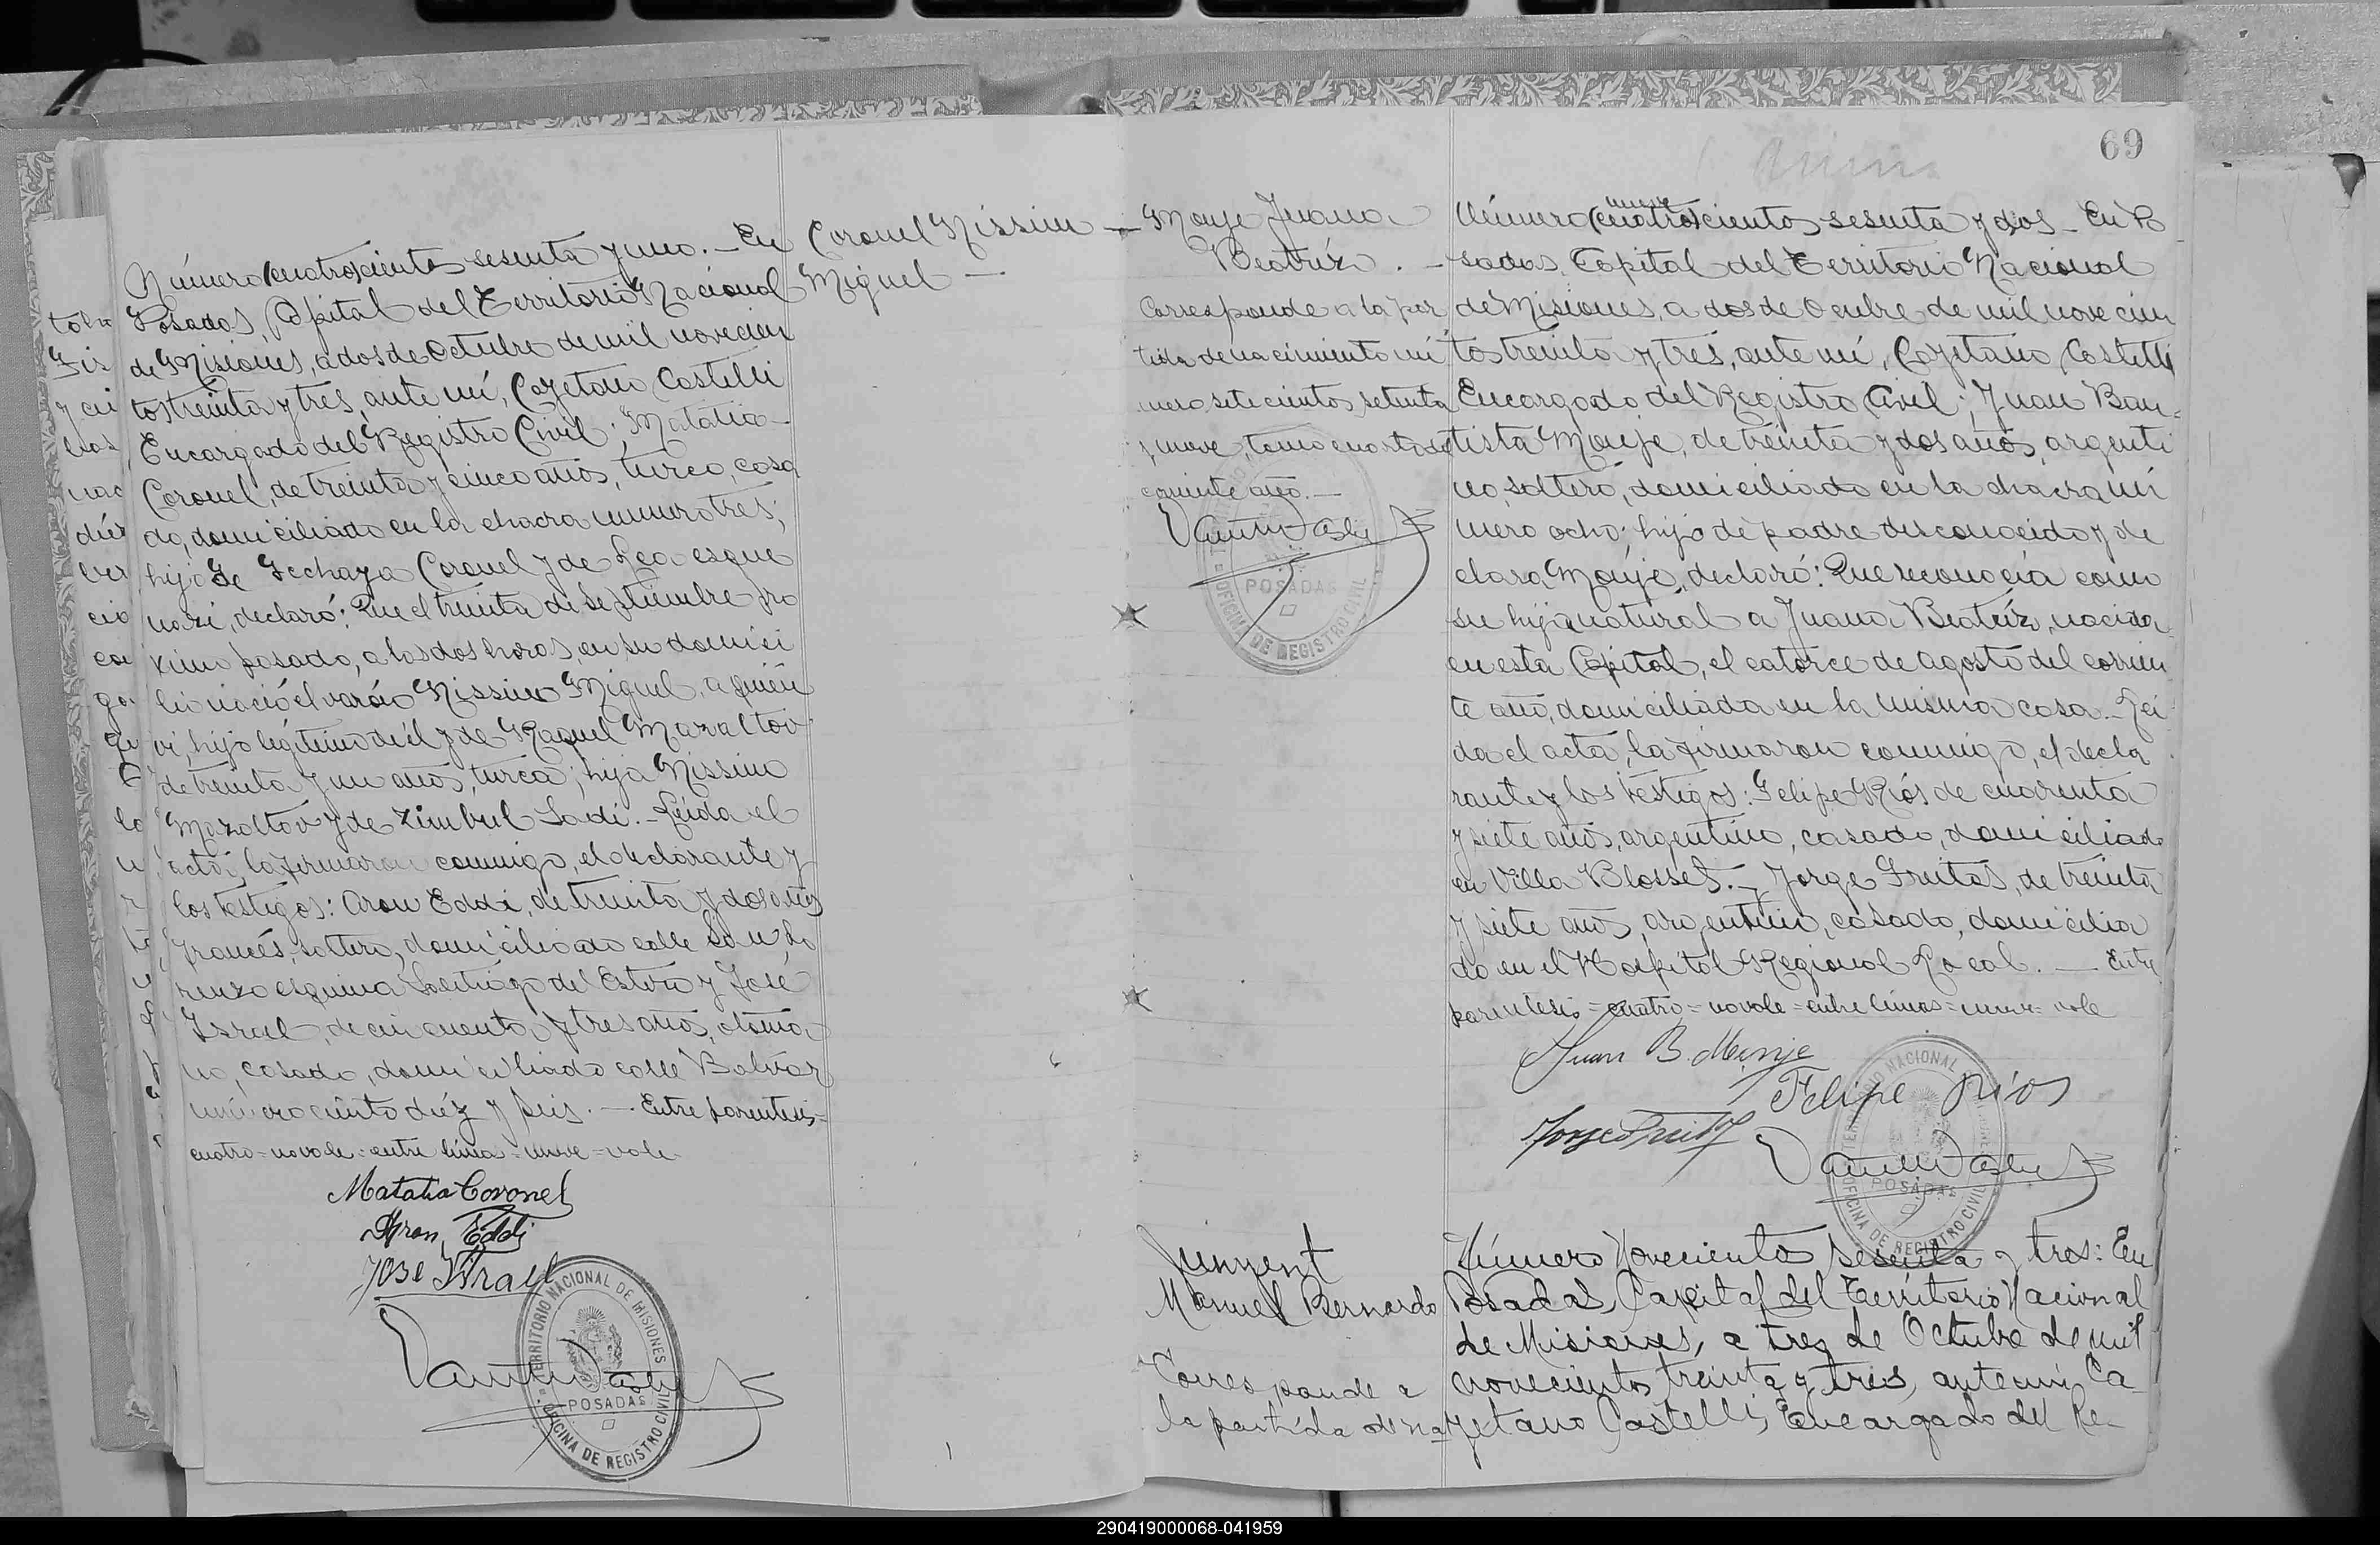 Coronel Nissim
Miguel
Número (cuatro)cientos sesenta y uno. - En
Posadas, Capital del Territorio Nacional
de Misiones, a dos de Octubre de mil novecien
tos treinta y tres, ante mí, Cayetano Castelli
Encargado del Registro Civil; Matatia
Coronel, de treinta y cinco años, turco, casa
do, domiciliado en la chacra número tres;
hijo de Coronel y de Lea esque
nazi, declaró: Que el treinta de Septiembre pro
ximo pasado, a las dos horas, en su domici
lio nació el varón Nissim Miguel, a quién
vi, hijo legítimo de él y de Raquel Mazaltov
de treinta y un años, turca; hija Nissim
Mazaltov y de Zimbul Sadi. - Leida el
acta, la firmaron conmigo, el declarante y
los testigos: Aron Eddi, de treinta y dos años
francés, soltero, domiciliado calle San Lo
renzo esquina Santiago del Estero y José
Israel, de cincuenta y tres años, otoma
no, casado, domiciliado calle Bolívar
número ciento diez y seis. - Entre parentesis=
cuatro=no vale=entre línea=nueve=vale
Matatia Coronel
Aron Eddi
Jose Israel
TERRITORIO NACIONAL DE MISIONES
POSADAS
OFICINA DE REGISTRO CIVIL
69
Monje Juana
Beatríz. -
Corresponde a la par
tida de nacimiento nú
mero setecientos setenta
y nueve, tomo del
corriente año. -
POSADAS
OFICINA DE REGISTRO CIVIL
nueve
Número (cuatro)cientos sesenta y dos - En Po
sadas, Capital del Territorio Nacional
de Misiones, a dos de Octubre de mil novecien
tos treinta y tres, ante mí, Cayetano Castelli
Encargado del Registro Civil; Juan Bau=
tista Monje, de treinta y dos años, argenti
no, soltero, domiciliado en la chacra nú
mero ocho; hijo de padre desconocido y de
clara Monje, declaró: Que reconocía como
su hija natural a Juana Beatríz, nacida
en esta Capital, el catorce de agosto del corrien
te año, domiciliada en la misma casa. - Lei
da el acta, la firmaron conmigo, el decla
rante y los testigos: Felipe Ríos de cuarenta
y siete años, argentino, casado, domiciliado
en Villa Blosset. - y Jorge Fruitos, de treinta
y siete años, argentino, casado, domicilia
do en el Hospital Regional Local. - Entre
parentesis=cuatro=no vale=entre lineas=nueve=vale
Juan B. Monje
Felipe Rios
TERRITORIO NACIONAL
POSADAS
OFICINA DE REGISTRO CIVIL
Junyent
Manuel Bernardo
Corresponde a
la partida de na
Número Novecientos sesenta y tres: En
Posadas, Capital del Territorio Nacional
de Misiones, a tres de Octubre de mil
novecientos treinta y tres, ante mi Ca
yetano Castelli, Encargado del Re-
290419000068-041959